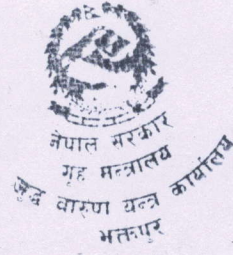 नेपाल सरकार
गृह मन्त्रालय
जुद्ध वारुण यन्त्र कार्यालय
भक्तपुर